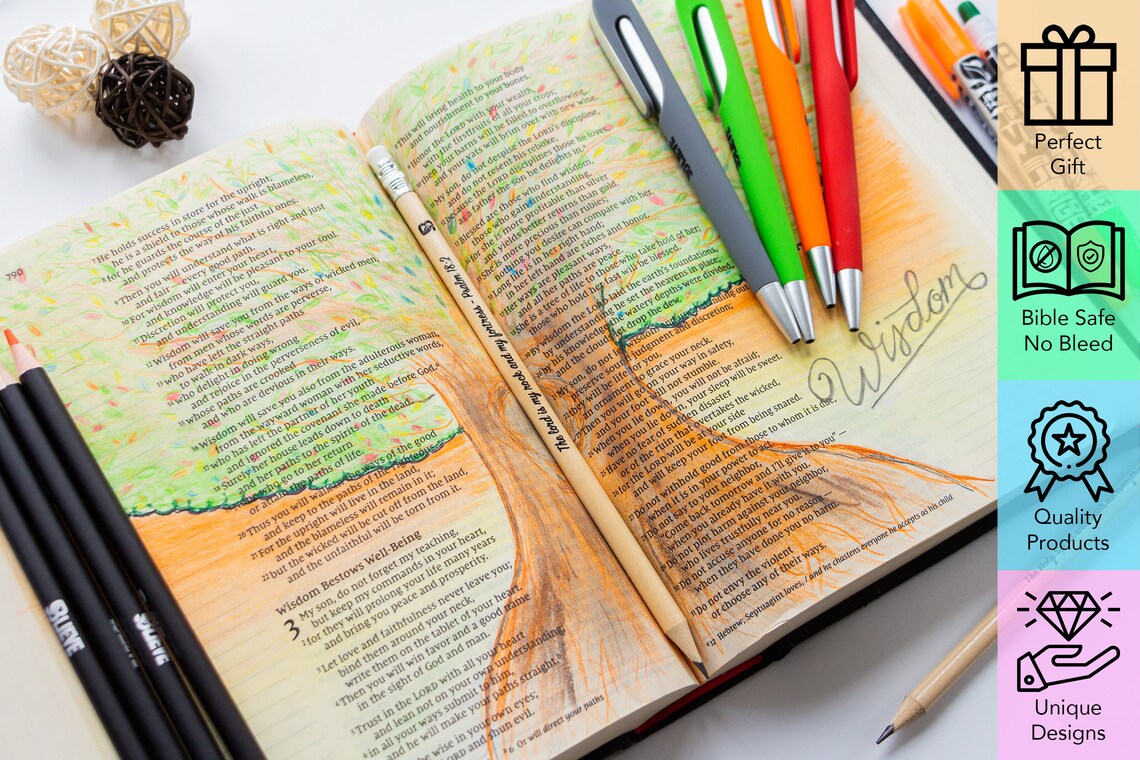 7he holds success in store for the upright,
he is a shield to those whose walk is blameless,
8for he guards the course of the just
and protects the way of his faithful ones.
9Then you will understand what is right and just
and fair—every good path.
10For wisdom will enter your heart,
and knowledge will be pleasant to your soul.
11Discretion will protect you,
and understanding will guard you.
12Wisdom will save you from the ways of wicked men,
from men whose words are perverse,
13who have left the straight paths
to walk in dark ways,
14who delight in doing wrong
and rejoice in the perverseness of evil,
15whose paths are crooked
and who are devious in their ways.
16Wisdom will save you also from the adulterous woman,
from the wayward woman with her seductive words,
17who has left the partner of her youth
and ignored the covenant she made before God.a
18Surely her house leads down to death
and her paths to the spirits of the dead.
19None who go to her return
or attain the paths of life.
20Thus you will walk in the ways of the good
and keep to the paths of the righteous.
21For the upright will live in the land,
and the blameless will remain in it;
22but the wicked will be cut off from the land,
and the unfaithful will be torn from it.
Wisdom Bestows Well-Being
3 My son, do not forget my teaching,
but keep my commands in your heart,
2for they will prolong your life many years
and bring you peace and prosperity.
3Let love and faithfulness never leave you;
bind them around your neck,
write them on the tablet of your heart.
4Then you will win favor and a good name
in the sight of God and man.
5Trust in the LORD with all your heart
and lean not on your own understanding;
6in all your ways submit to him,
and he will make your paths straight.b
7Do not be wise in your own eyes;
fear the LORD and shun evil.
b6 Or will direct your paths
8This will bring health to your body
and nourishment to your bones.
9Honor the LORD with your wealth,
with the firstfruits of all your crops;
10then your barns will be filled to overflowing,
and your vats will brim over with new wine.
11My son, do not despise the LORD's discipline,
and do not resent his rebuke,
12because the LORD disciplines those he loves,
as a father the son he delights in.a
13Blessed are those who find wisdom,
those who gain understanding,
14for she is more profitable than silver
and yields better returns than gold.
15She is more precious than rubies;
nothing you desire can compare with her.
16Long life is in her right hand;
in her left hand are riches and honor.
17Her ways are pleasant ways,
and all her paths are peace.
18She is a tree of life to those who take hold of her;
those who hold her fast will be blessed.
19By wisdom the LORD laid the earth's foundations,
by understanding he set the heavens in place;
20by his knowledge the watery depths were divided,
and the clouds let drop the dew.
21My son, do not let wisdom and understanding out
judgment and discretion;
grace your neck.
your way in safety,
will not stumble.
you will not be afraid;
your sleep will be sweet.
25Have no fear of sudden disaster
overtakes the wicked,
26for the LORD will be at your side
and will keep your foot from being snared.
27Do not withhold good from those to whom it is due,
when it is in your power to act.
28Do not say to your neighbor,
"Come back tomorrow and I'll give it to you"—
when you already have it with you.
29Do not plot harm against your neighbor,
who lives trustfully near you.
30Do not accuse anyone for no reason—
when they have done you no harm.
31Do not envy the violent
or choose any of their ways,
a12 Hebrew; Septuagint loves, / and he chastens everyone he accepts as his child
The lord is my rock and my fortress - Psalm 18:2
Wisdom
Perfect
Gift
Bible Safe
No Bleed
Quality
Products
Unique
Designs